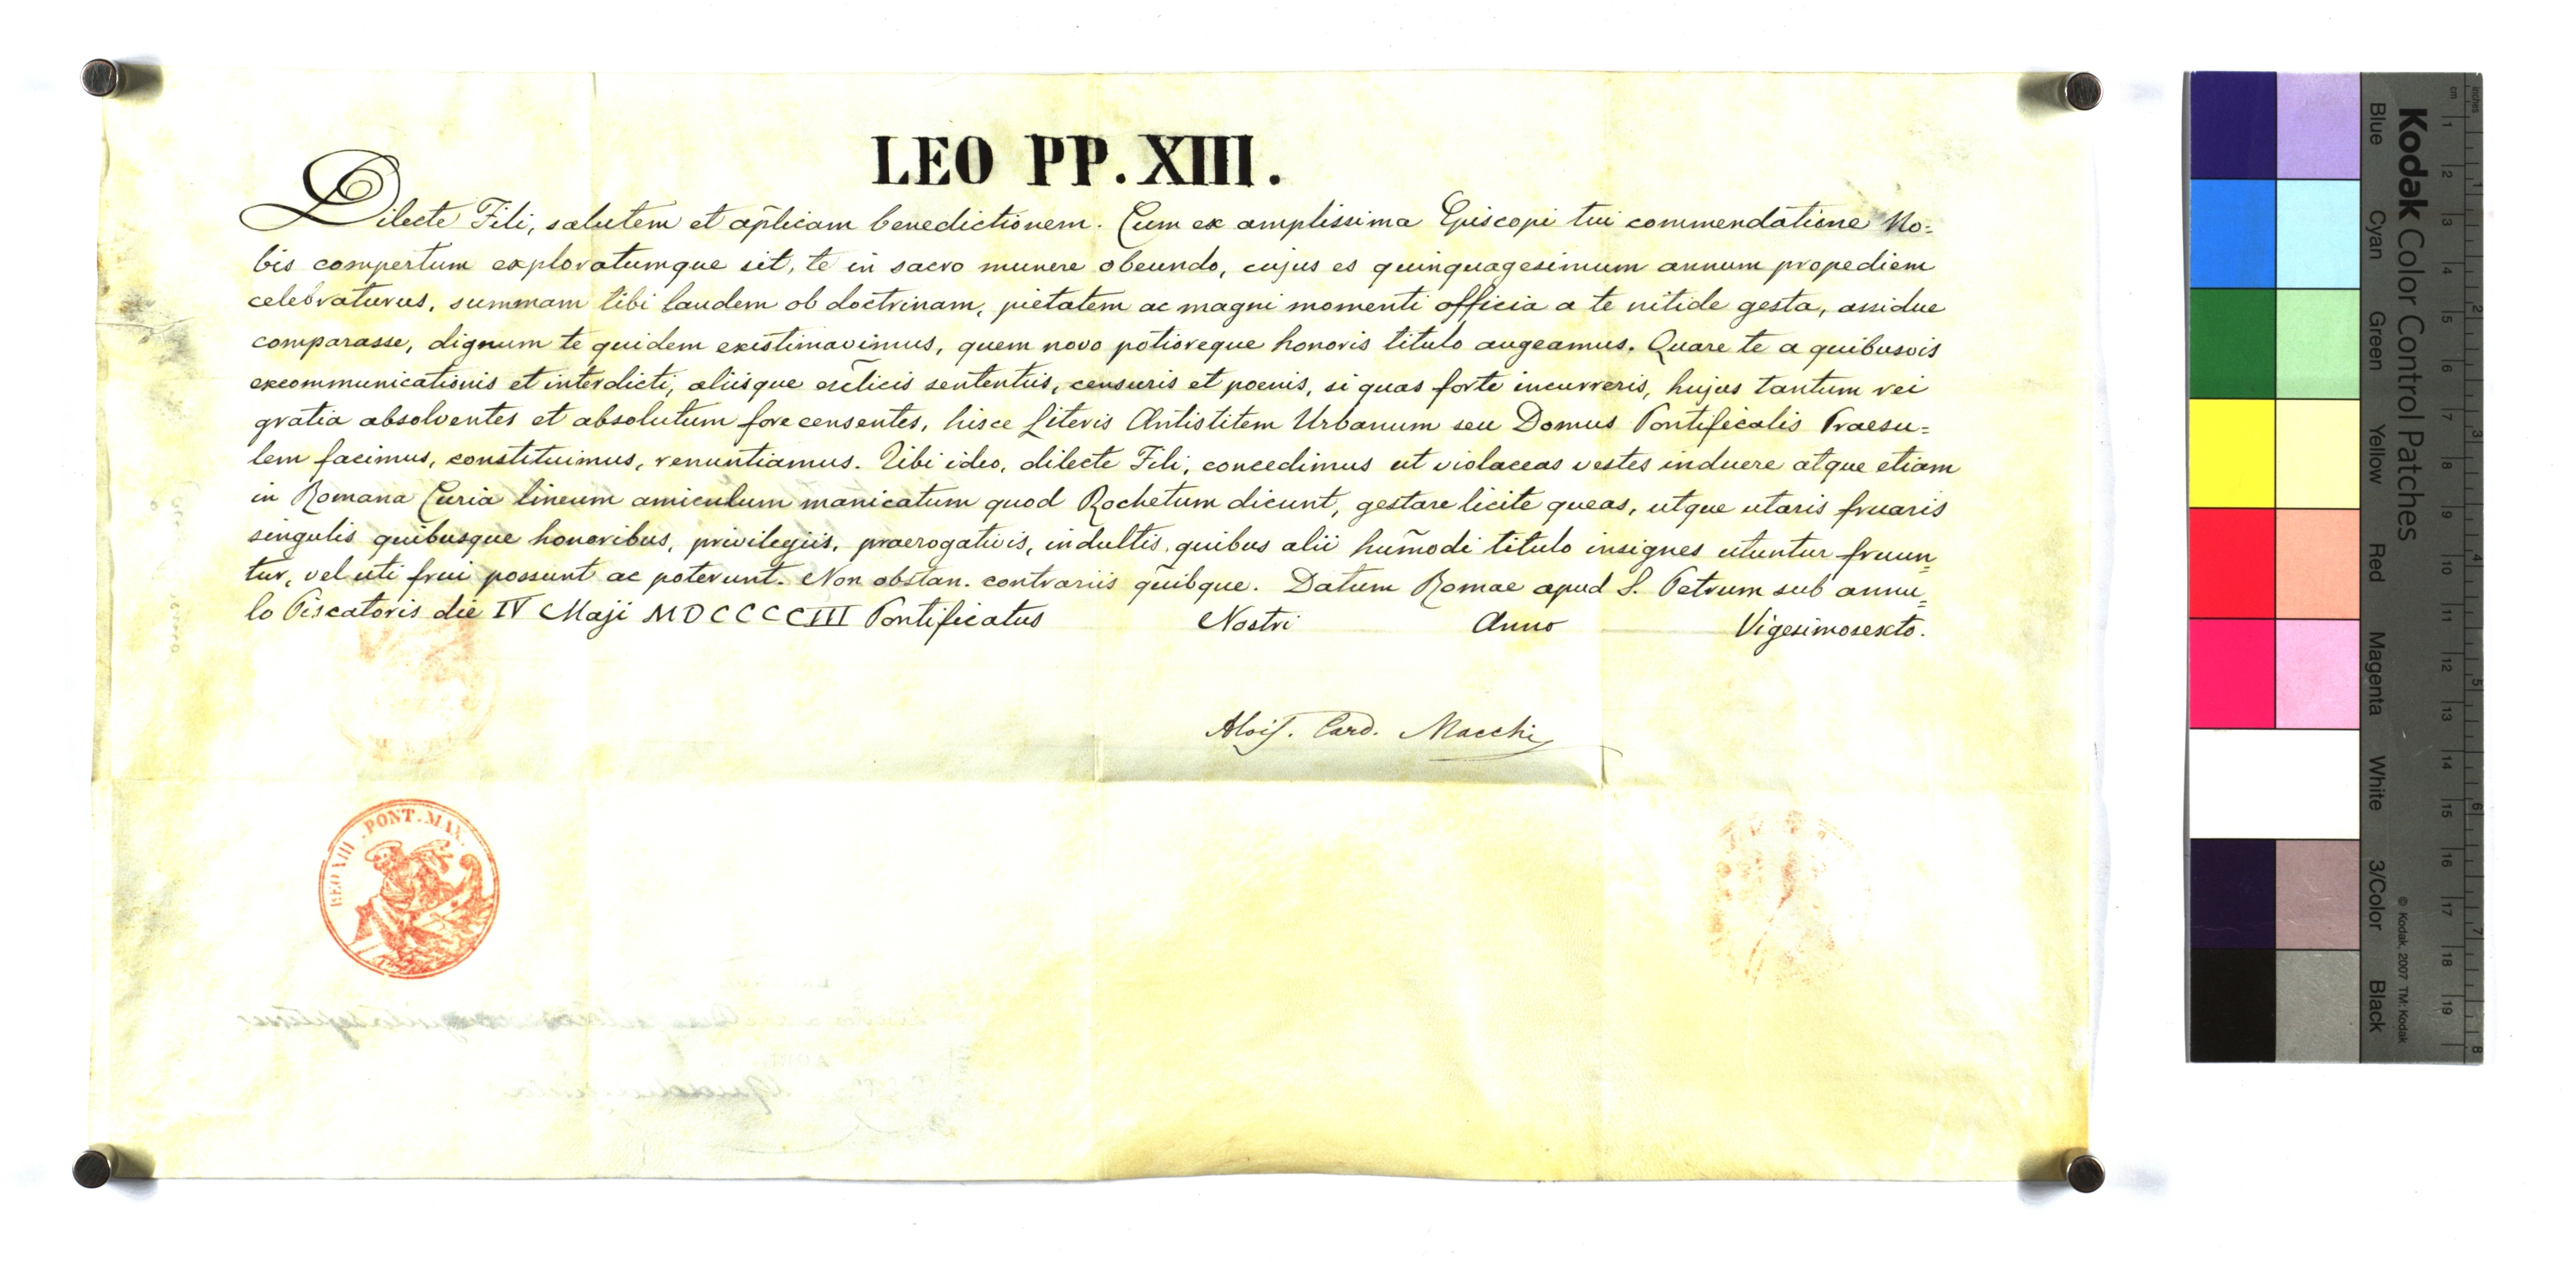 LEO PP. XIII.
Dilecte Fili, salutem et aplicam benedictionem. Cum ex amplissima Episcopi tui commendatione No=
bis compertum exploratumque sit, te in sacro munere obeundo, cujus es quinquagesimum annum propediem
celebraturus, summam tibi laudem ob doctrinam, pietatem ac magni momenti officia a te nitide gesta, assidue
comparasse, dignum te quidem existimavimus, quem novo potioreque honoris titulo augeamus. Quare te a quibusvis
excommunicationis et interdicti, aliisque eccl̃icis sententiis, censuris et poenis, si quas forte incurreris, hujus tantum rei
gratia absolventes et absolutum fore censentes, hisce Literis Antistitem Urbanum seu Domus Pontificalis Praesu=
lem facimus, constituimus, renuntiamus. Tibi ideo, dilecte Fili, concedimus ut violaceas vestes induere atque etiam
in Romana Curia lineum amiculum manicatum quod Rochetum dicunt, gestare licite queas, utque utaris fruaris
singulis quibusque honoribus, privilegiis, praerogativis, indultis, quibus alii hum̃odi titulo insignes utuntur fruun=
tur, vel uti frui possunt ac poterunt. Non obstan. contrariis quĩbque. Datum Romae apud S. Petrum sub annu=
lo Piscatoris die IV Maji MDCCCCIII Pontificatus Nostri Anno Vigesimosexto.
Alois. Card. Macchi
LEO XIII . PONT. MAX.
Kodak Color Control Patches
Blue Cyan Green Yellow Red Magenta White 3/Color Black
© Kodak, 2007 TM: Kodak
inches 1 2 3 4 5 6 7 8
cm 1 2 3 4 5 6 7 8 9 10 11 12 13 14 15 16 17 18 19